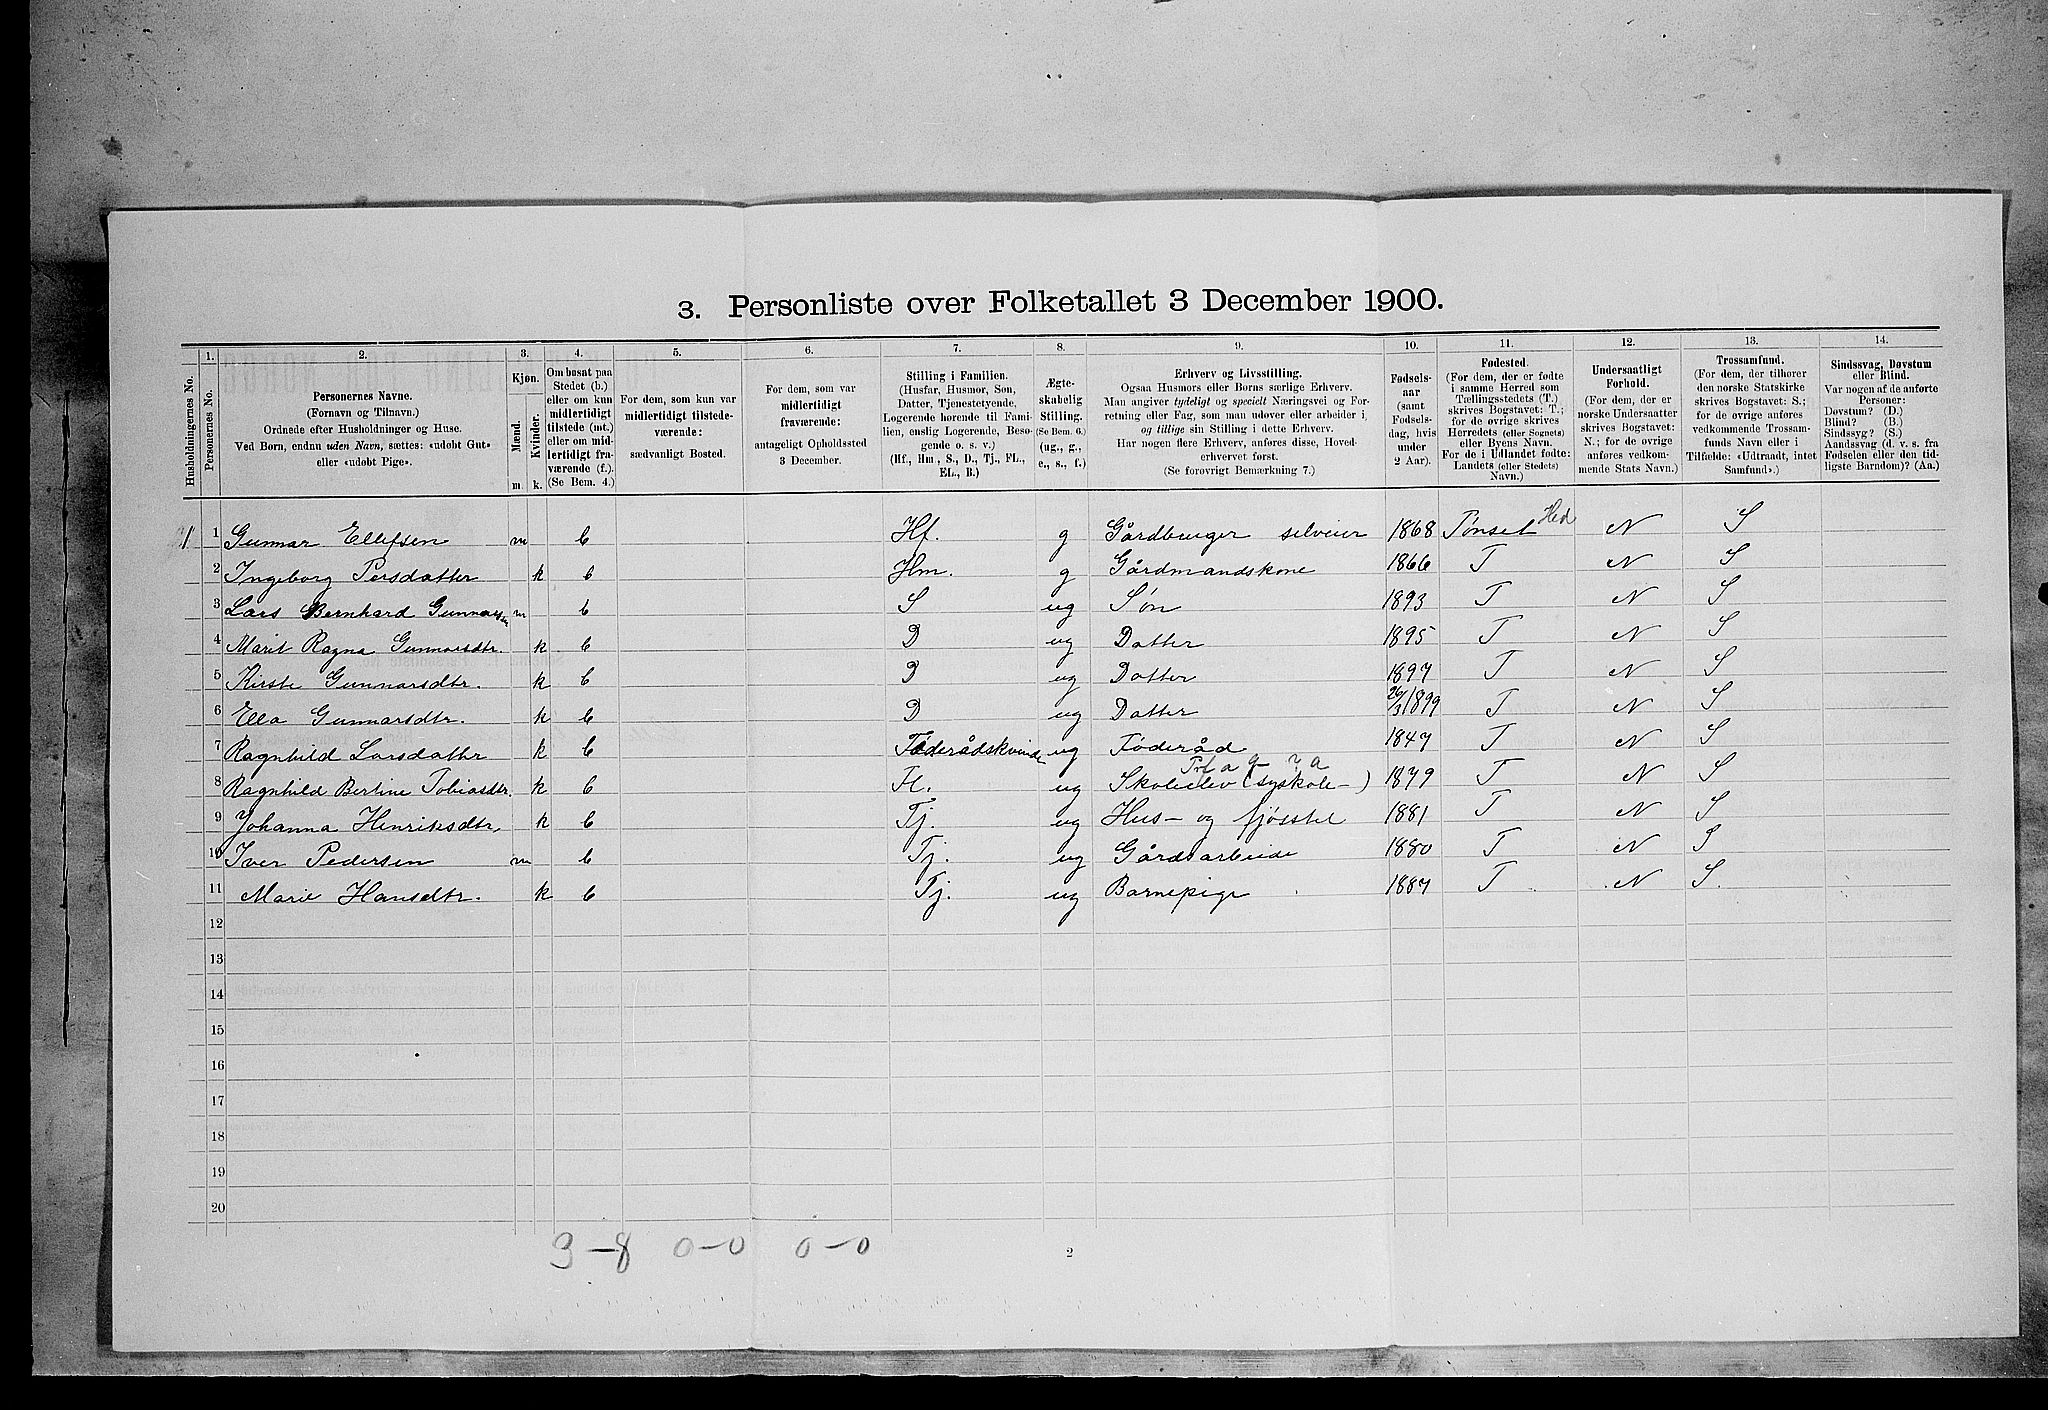 3. Personliste over Folketallet 3 December 1900.
Husholdningernes No.
1. Personernes No.
2. Personernes Navne. (Fornavn og Tilnavn.) Ordnede efter Husholdninger og Huse. Ved Børn, endnu uden Navn, sættes: «udøbt Gut» eller «udøbt Pige».
3. Kjøn. Mænd. m. Kvinder. k.
4. Om bosat paa Stedet (b.) eller om kun midlertidigt tilstede (mt.) eller om midlertidigt fraværende (f.). (Se Bem. 4.)
5. For dem, som kun var midlertidigt tilstedeværende: sædvanligt Bosted.
6. For dem, som var midlertidigt fraværende: antageligt Opholdssted 3 December.
7. Stilling i Familien. (Husfar, Husmor, Søn, Datter, Tjenestetyende, Logerende hørende til Familien, enslig Logerende, Besøgende o. s. v.) (Hf., Hm., S., D., Tj., FL., EL., B.)
8. Ægteskabelig Stilling. (Se Bem. 6.) (ug., g., e., s., f.)
9. Erhverv og Livsstilling. Ogsaa Husmors eller Børns særlige Erhverv. Man angiver tydeligt og specielt Næringsvei og Forretning eller Fag, som man udøver eller arbeider i, og tillige sin Stilling i dette Erhverv. Har nogen flere Erhverv, anføres disse, Hovederhvervet først. (Se forøvrigt Bemærkning 7.)
10. Fødselsaar (samt Fødselsdag, hvis under 2 Aar).
11. Fødested. (For dem, der er fødte i samme Herred som Tællingsstedets (T.) skrives Bogstavet: T.; for de øvrige skrives Herredets (eller Sognets) eller Byens Navn. For de i Udlandet fødte: Landets (eller Stedets) Navn.)
12. Undersaatligt Forhold. (For dem, der er norske Undersaatter skrives Bogstavet: N.; for de øvrige anføres vedkommende Stats Navn.)
13. Trossamfund. (For dem, der tilhører den norske Statskirke skrives Bogstavet: S.; for de øvrige anføres vedkommende Trossamfunds Navn eller i Tilfælde: «Udtraadt, intet Samfund».)
14. Sindssvag, Døvstum eller Blind. Var nogen af de anførte Personer: Døvstum? (D.) Blind? (B.) Sindssyg? (S.) Aandssvag (d. v. s. fra Fødselen eller den tidligste Barndom)? (Aa.)
1 1 Gunnar Ellefsen m b Hf. g Gårdbruger selveier 1868 Tønset Hed N S
2 Ingeborg Persdatter k b Hm. g Gårdmandskone 1866 T N S
3 Lars Bernhard Gunnarsen m b S ug Søn 1893 T N S
4 Marit Ragna Gunnarsdtr. k b D ug Datter 1895 T N S
5 Kirste Gunnarsdtr. k b D ug Datter 1897 T N S
6 Ella Gunnarsdtr. k b D ug Datter 26/3 1899 T N S
7 Ragnhild Larsdatter k b Föderådskvinde ug Föderåd 1847 T N S
8 Ragnhild Bertine Tobiasdtr. k b Fl. ug Skoleelev (syskole-) 1879 T N S
9 Johanna Henriksdtr. k b Tj. ug Hus- og fjösstel 1881 T N S
10 Iver Pedersen m b Tj. ug Gårdsarbeide 1880 T N S
11 Marie Hansdtr. k b Tj. ug Barnepige 1887 T N S.
12
13
14
15
16
17
18
19
20
3-8 0-0 0-0
2